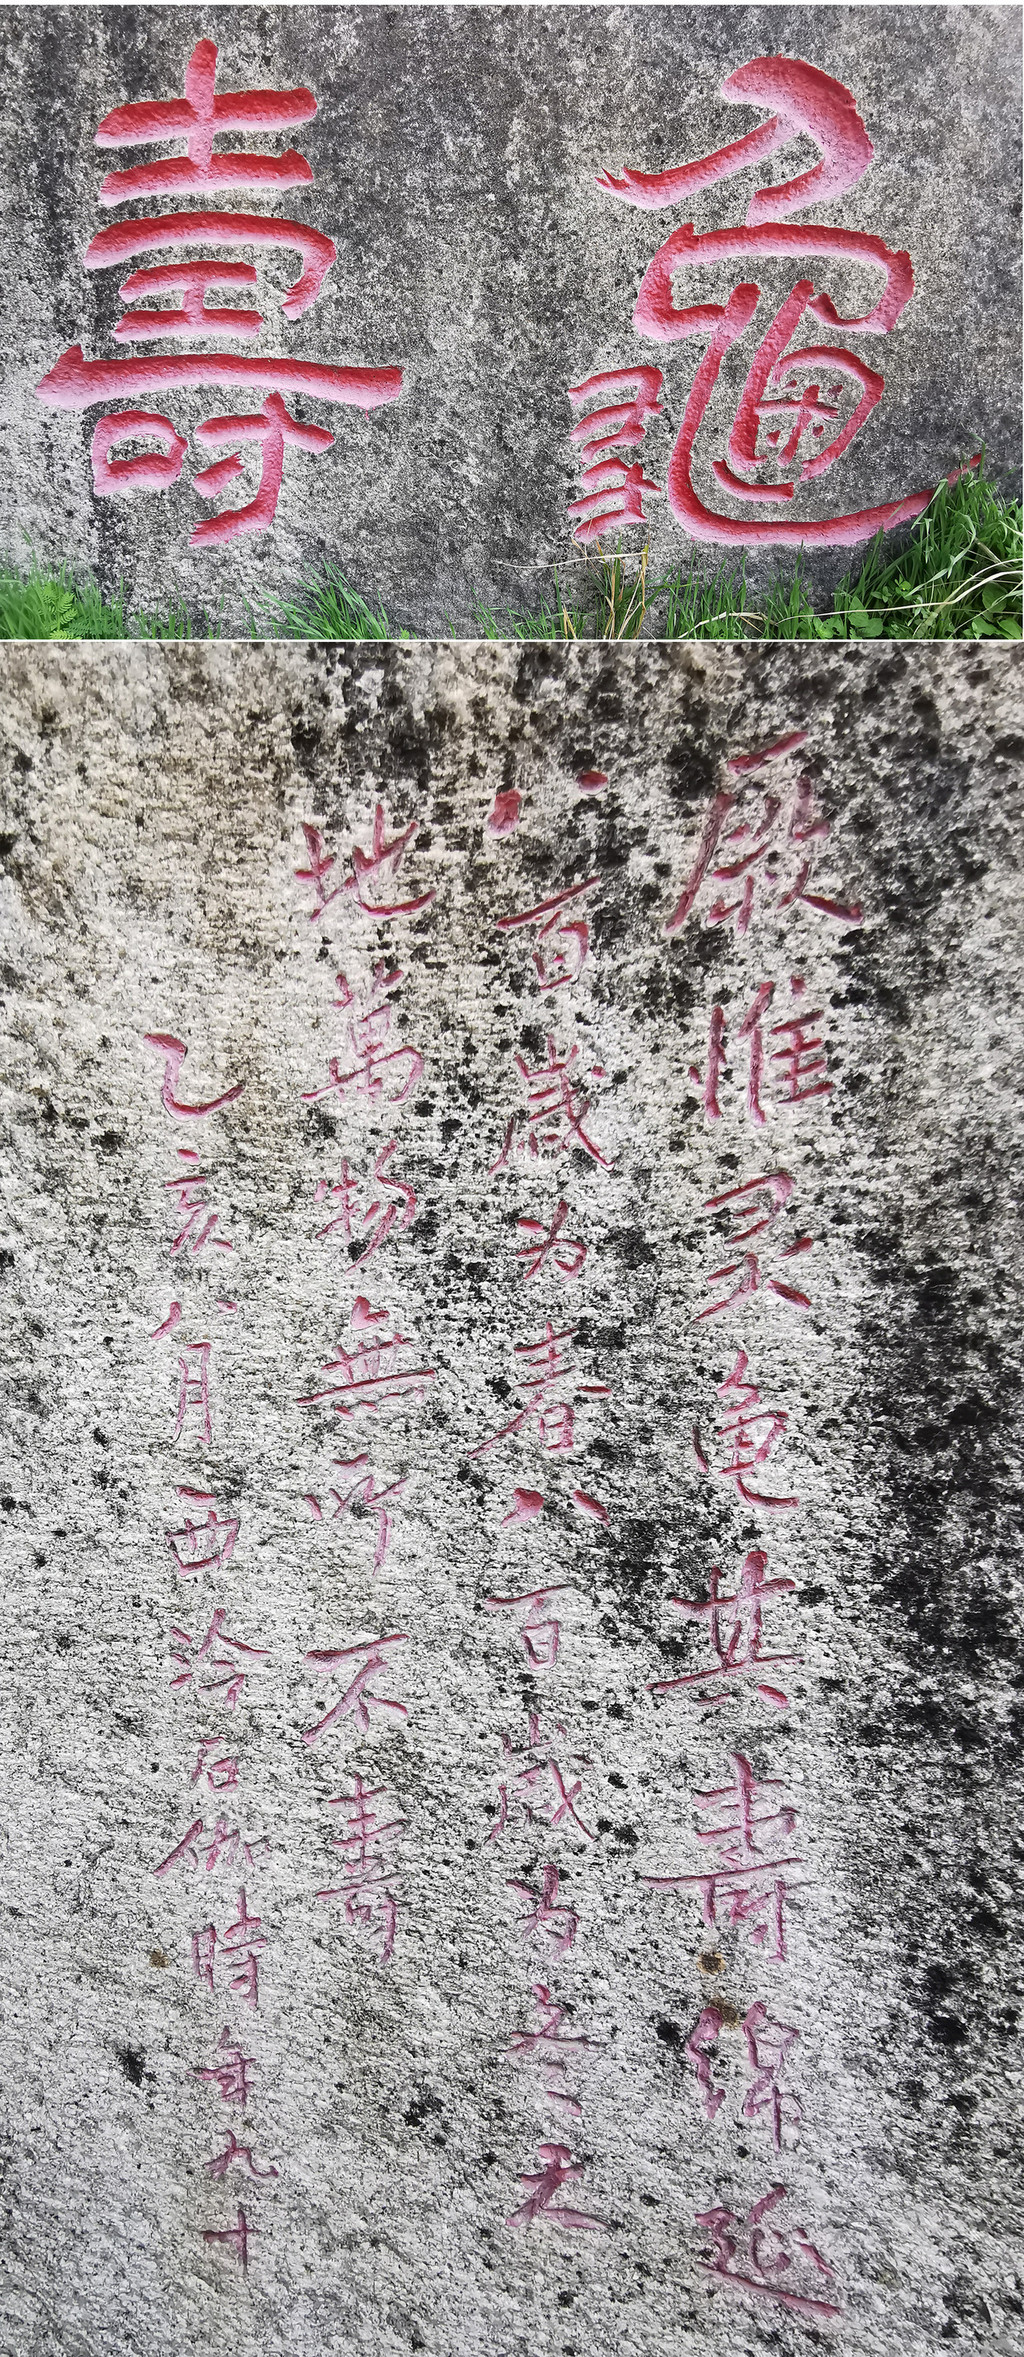 龜壽
厥惟灵龟其壽綿延
八百歲为春八百歲為冬天
地萬物無所不壽
乙亥八月西泠石伽時年九十